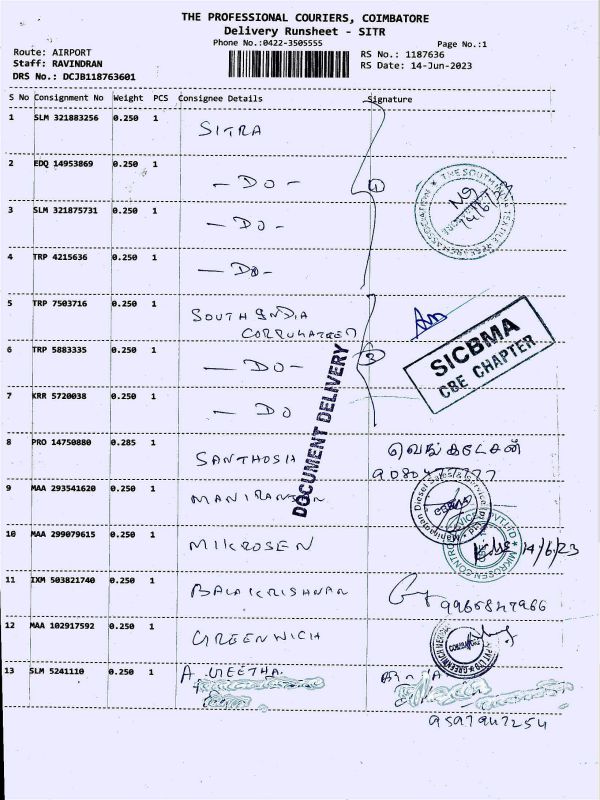 THE PROFESSIONAL COURIERS, COIMBATORE
Delivery Runsheet - SITR
Phone No.:0422-3505555
Page No.:1
Route: AIRPORT
RS No.: 1187636
Staff: RAVINDRAN
RS Date: 14-Jun-2023
DRS No.: DCJB118763601
S No Consignment No Weight PCS Consignee Details Signature
1 SLM 321883256 0.250 1 SITRA
2 EDQ 14953869 0.250 1 - DO -
3 SLM 321875731 0.250 1 - DO -
4 TRP 4215636 0.250 1 - DO -
THE SOUTH INDIA TEXTILE RESEARCH ASSOCIATION
14/6/
5 TRP 7503716 0.250 1 SOUTH INDIA
CORRUGATED
6 TRP 5883035 0.250 1 - DO -
7 KRR 5720038 0.250 1 - DO
SICBMA
CBE CHAPTER
DOCUMENT DELIVERY
8 PRO 14750880 0.285 1 SANTHOSH வெங்கடேசன்
9 MAA 293541620 0.250 1
Diesel Sales & Service (P)
10 MAA 299079615 0.250 1 MIKROSEN 14/6/23
11 IXM 503821740 0.250 1 BALAKRISHNAN
9965847966
12 MAA 102917592 0.250 1 GREENWICH
13 SLM 5241110 0.250 1 A. GEETHA
9597947254